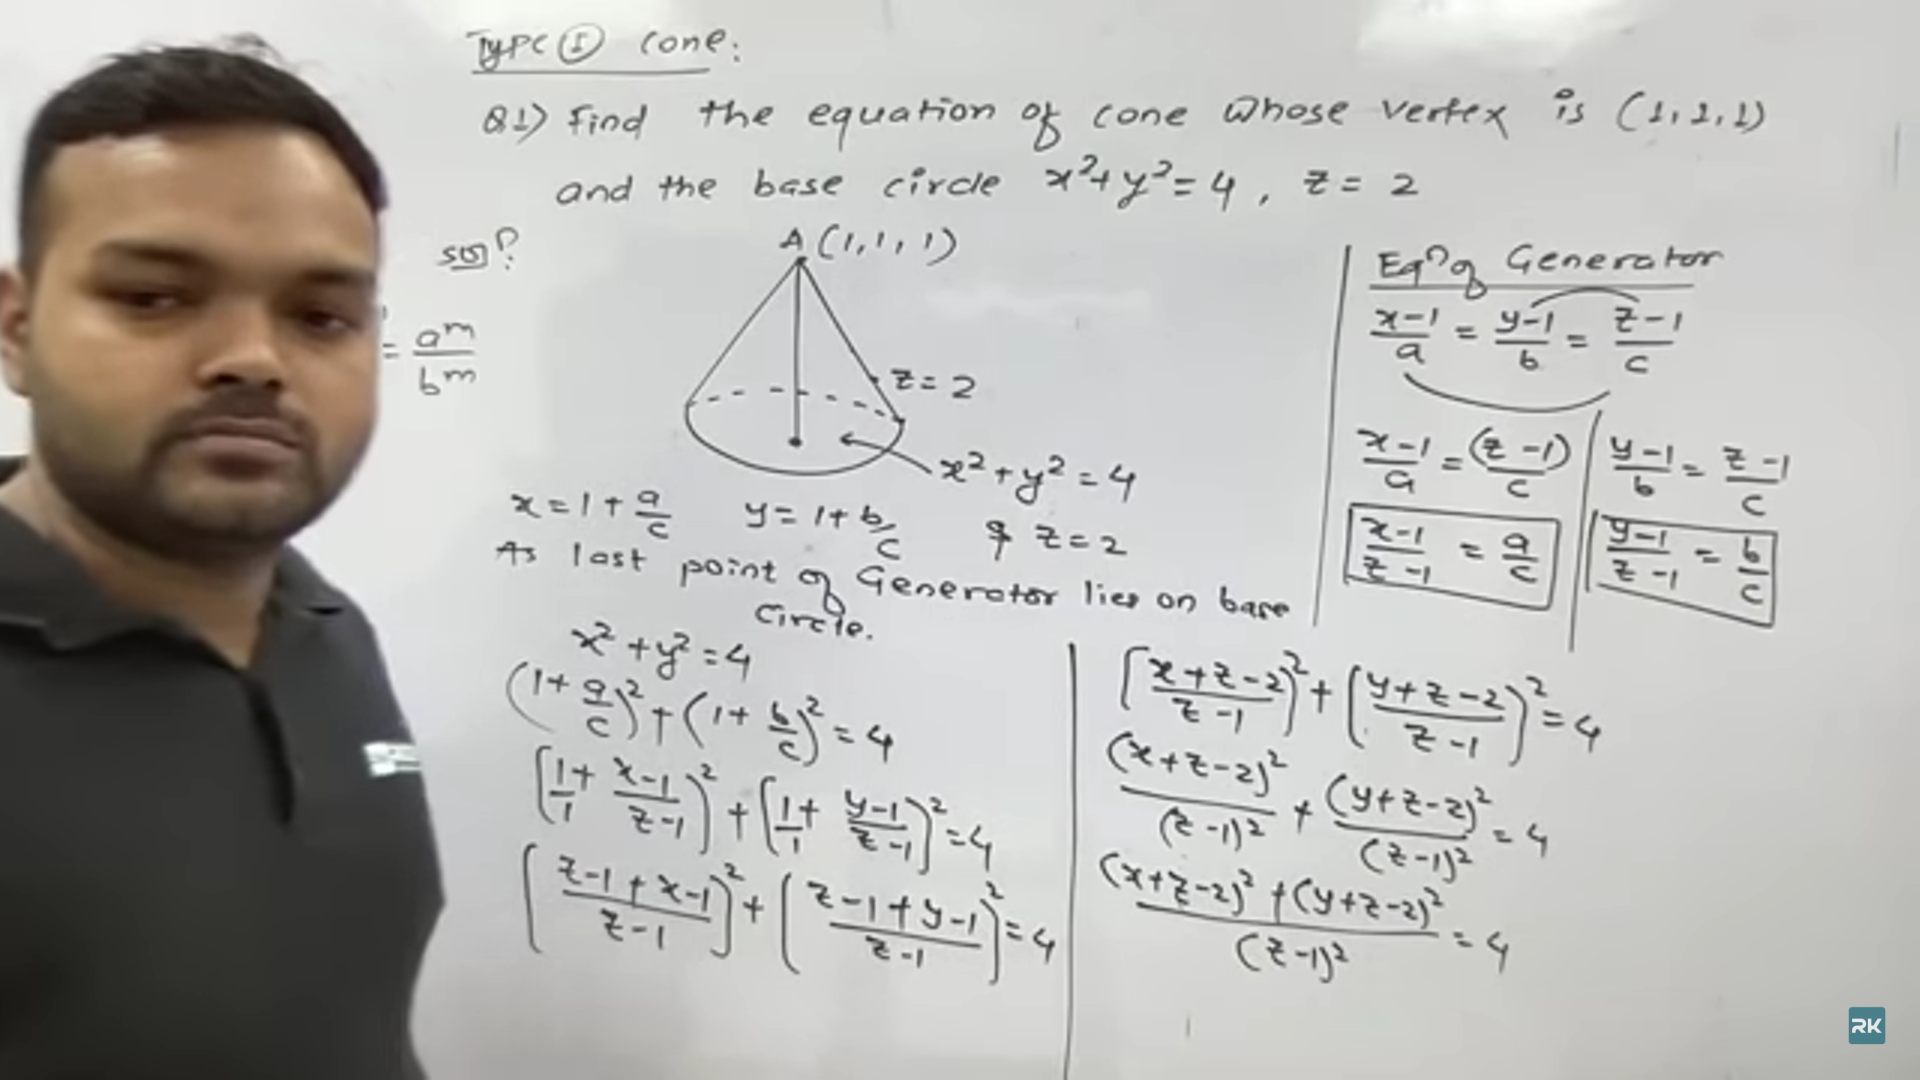 Type ① Cone:
Q1) Find the equation of cone whose vertex is (1,1,1)
and the base circle x²+y²=4, z=2
A(1,1,1)
= a^m/b^m
z=2
x²+y²=4
x=1+a/c y=1+b/c & z=2
As last point of Generator lies on base
Circle.
x²+y²=4
(1+a/c)²+(1+b/c)²=4
[1/1+(x-1)/(z-1)]²+[1/1+(y-1)/(z-1)]²=4
[(z-1+x-1)/(z-1)]²+((z-1+y-1)/(z-1))²=4
Eqⁿ of Generator
(x-1)/a=(y-1)/b=(z-1)/c
(x-1)/a=(z-1)/c
(x-1)/(z-1)=a/c
(y-1)/b=(z-1)/c
(y-1)/(z-1)=b/c
[(x+z-2)/(z-1)]²+((y+z-2)/(z-1))²=4
(x+z-2)²/(z-1)²+(y+z-2)²/(z-1)²=4
((x+z-2)²+(y+z-2)²)/(z-1)²=4
RK